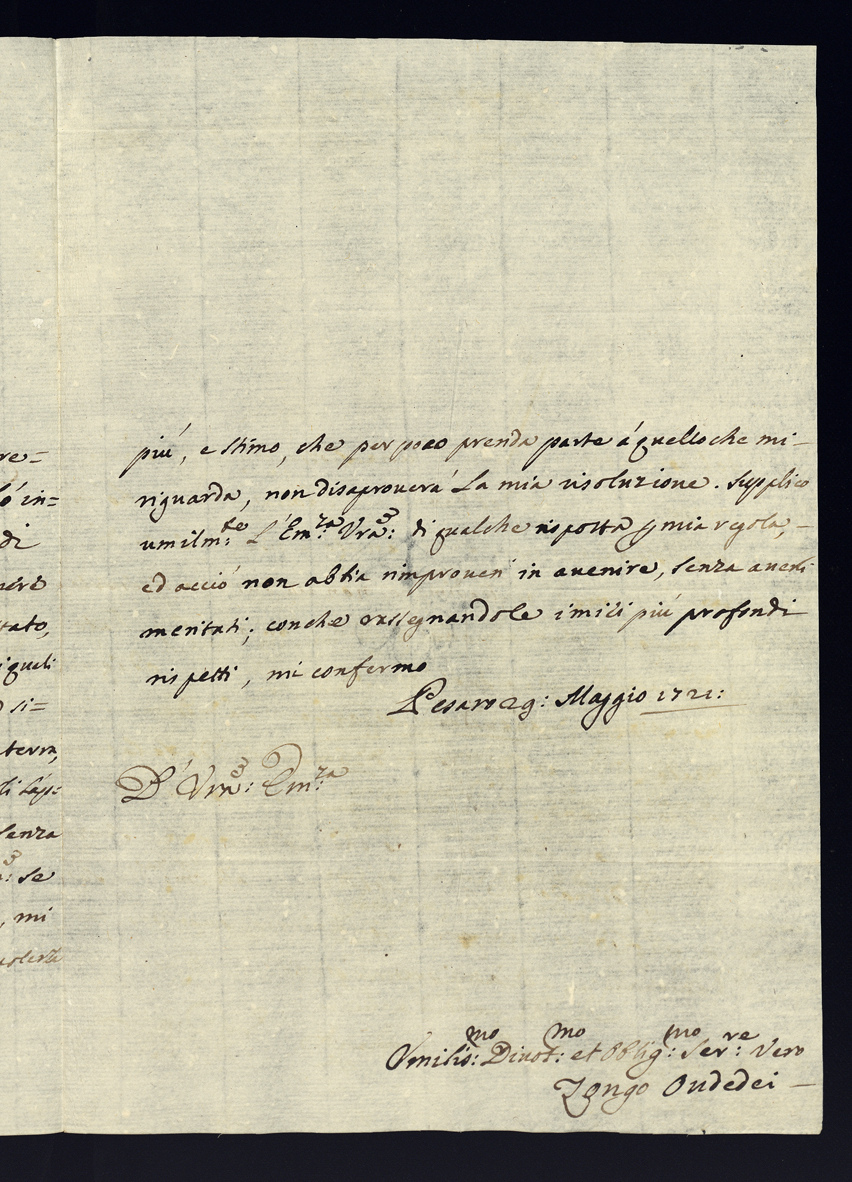 re=
lo in=
di
nere
tato,
iquali
o si=
terra,
liláp:
senza
a:³ se
, mi
più, e stimo, che per poco prenda parte á quello che mi-
riguarda, non disaproverá La mia risoluzione. Supplico
umilm:te L'Em:za Vra:³ di qualche risposta p mia regola,-
ed acció non abbia rimproveri in avenire, senza averli
meritati; conche rassegnandole i miei piú profondi
rispetti, mi confermo
Pesaro 29: Maggio 1721:
D' Vra:³ Em:za
Vmiliss:mo Divot:mo et Obblig:mo Ser:re Vero
Zongo Ondedei -